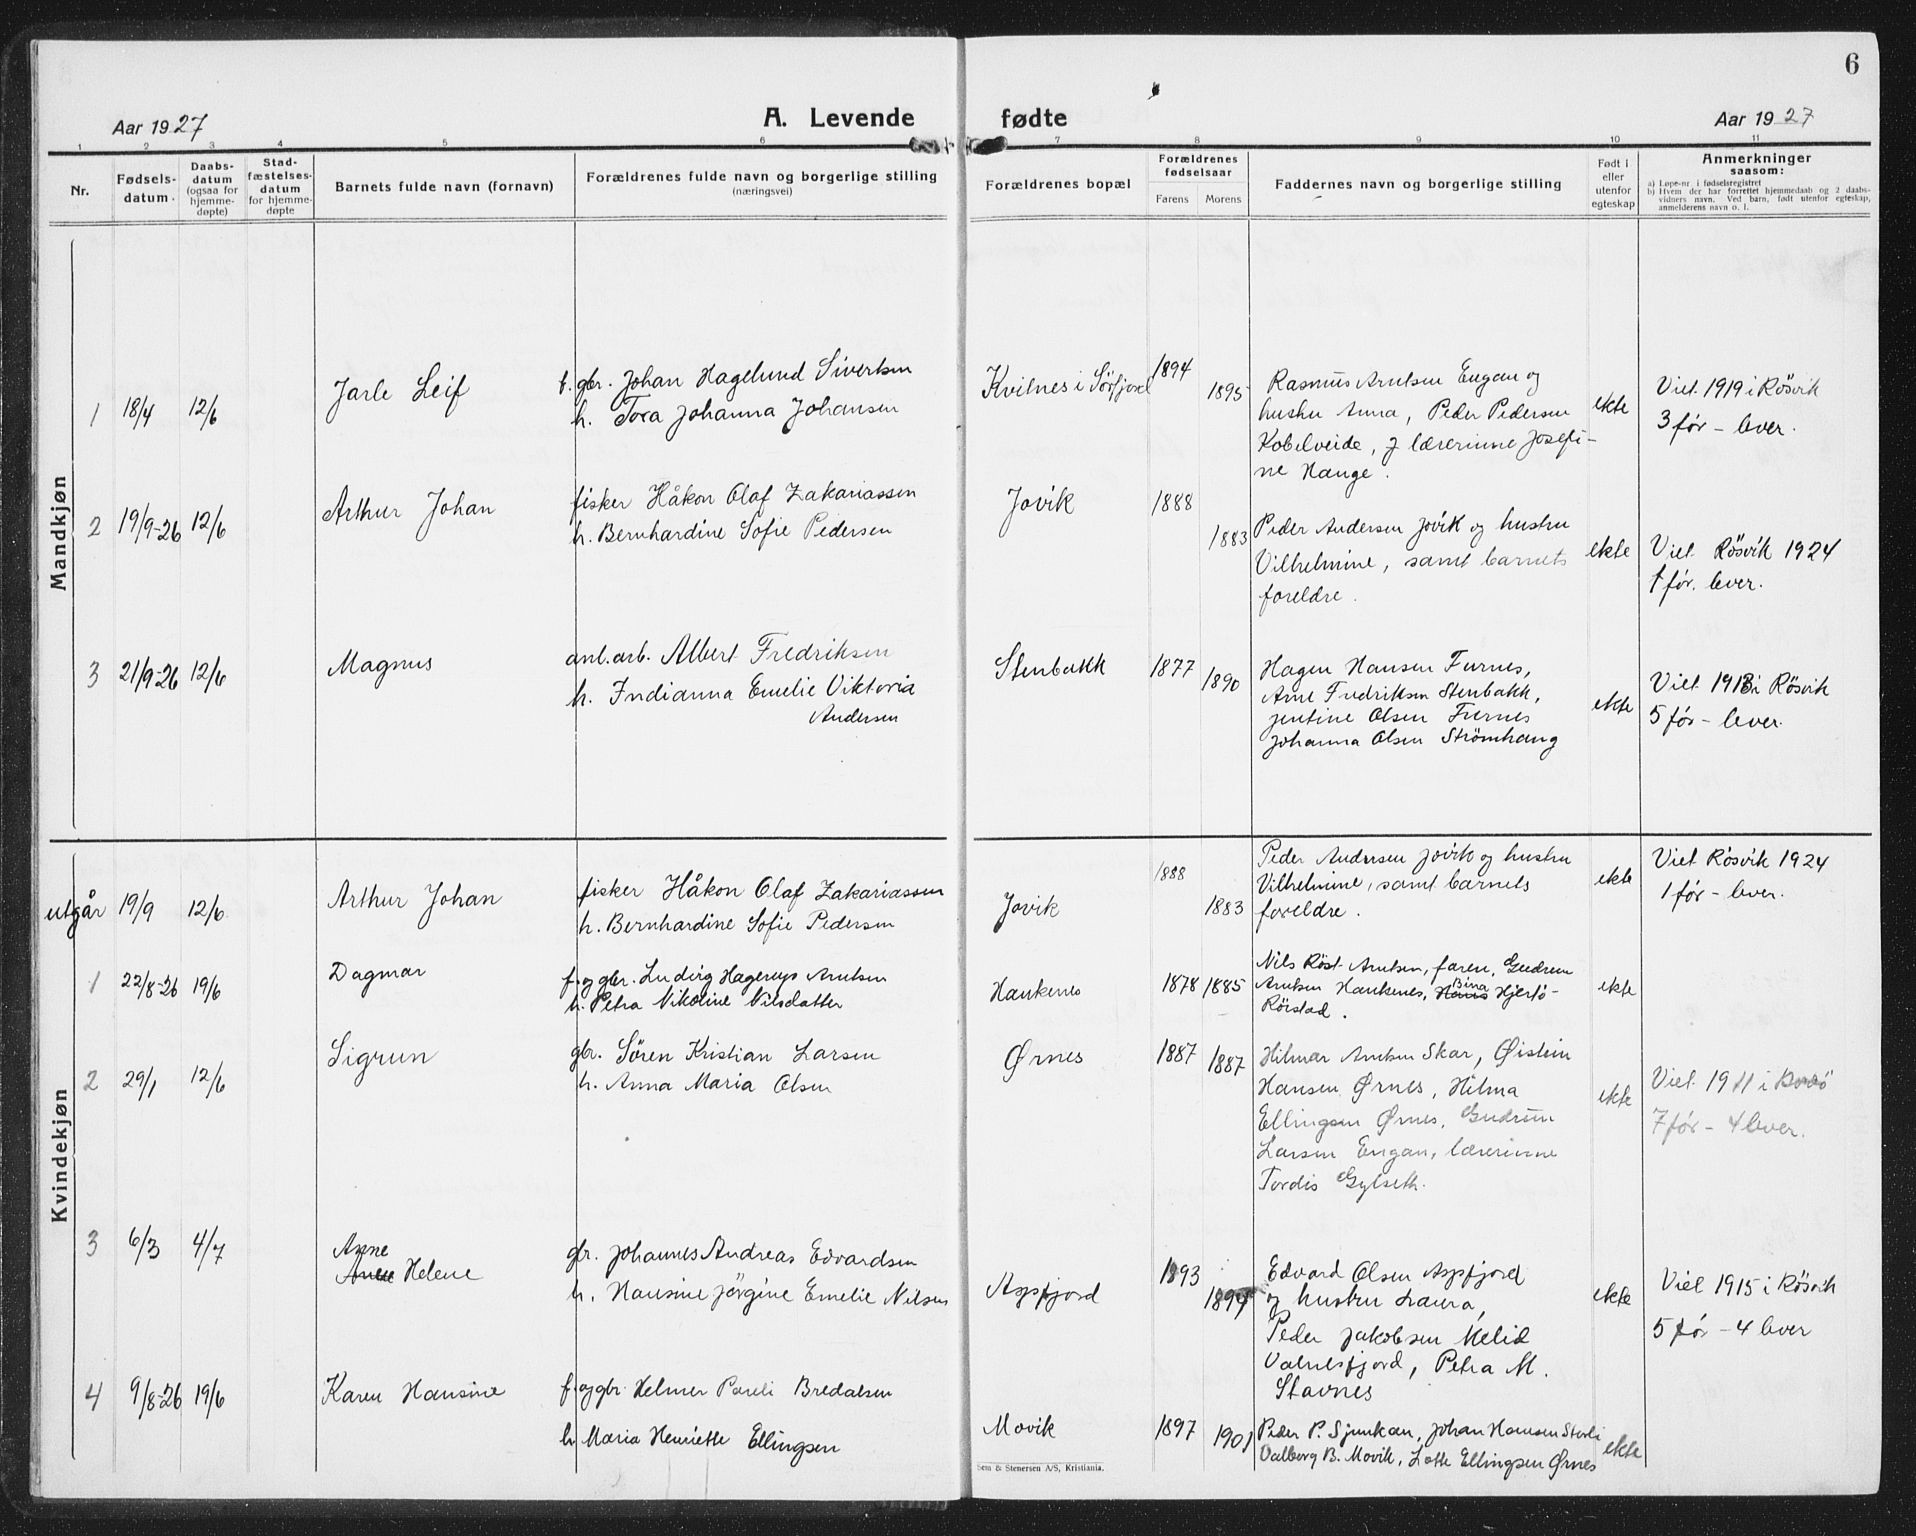 6
Aar 1927
A. Levende
fødte
Aar 1927
1 2 3 4 5 6 7 8 9 10 11
Nr.
Fødsels-
datum.
Daabs-
datum
(ogsaa for
hjemme-
døpte)
Stad-
fæstelses-
datum
for hjemme-
døpte
Barnets fulde navn (fornavn)
Forældrenes fulde navn og borgerlige stilling
(næringsvei)
Forældrenes bopæl
Forældrenes
fødselsaar
Farens Morens
Faddernes navn og borgerlige stilling
Født i
eller
utenfor
egteskap
Anmerkninger
saasom:
a) Løpe-nr. i fødselsregistret
b) Hvem der har forrettet hjemmedaab og 2 daabs-
vidners navn. Ved barn, født utenfor egteskap,
anmelderens navn o. l.
Mandkjøn
1 18/4 12/6 Jarle Leif
f. gbr. Johan Hagelund Sivertsen
h. Tora Johanna Johansen
Kvilnes i Sörfjord
1894
1895
Rasmus Arntsen Engan og
hustru Anna, Peder Pedersen
Kobelveide, J lærerinne Josefi-
ne Hauge.
ekte
Viet 1919 i Røsvik
3 før - lever.
2 19/9-26 12/6 Arthur Johan
fisker Håkon Olaf Zakariassen
h. Bernhardine Sofie Pedersen
Jovik
1888
1883
Peder Andersen Jovik og hustru
Vilhelmine, samt barnets
foreldre.
ekte
Viet Røsvik 1924
1 før. lever.
3 21/9-26 12/6 Magnus
anl.arb. Albert Fredriksen
h. Indianna Emelie Viktoria
Andersen
Stenbakk
1877
1890
Hagen Hansen Furnes,
Arne Fredriksen Stenbakk,
Jentine Olsen Furnes
Johanna Olsen Strömhaug
ekte
Viet 1913 i Røsvik
5 før - lever.
Kvindekjøn
utgår 19/9 12/6 Arthur Johan
fisker Håkon Olaf Zakariassen
h. Bernhardine Sofie Pedersen
Jovik
1888
1883
Peder Andersen Jovik og hustru
Vilhelmine, samt barnets
foreldre.
ekte
Viet Røsvik 1924
1 før - lever.
1 22/8-26 19/6 Dagmar
f. og gbr. Ludvig Hagerup Arntsen
h. Petra Nikoline Nilsdatter
Haukenes
1878 1885
Nils Røst Arntsen, faren, Gudrun
Arntsen Haukenes, Hans Bina Hjertö-
Rörstad.
ekte
2 29/1 12/6 Sigrun
gbr. Sören Kristian Larsen
h. Anna Maria Olsen
Ørnes
1887 1887
Hilmar Arntsen Skar, Øistein
Hansen Ørnes, Hilma
Ellingsen Ørnes, Gudrun
Larsen Engan, lærerinne
Tordis Gylseth.
ekte
Viet 1911 i Bodø
7 før - 4 lever.
3 6/3 4/7 Anne
Helene
gbr. Johannes Andreas Edvardsen
h. Hansine Jörgine Emelie Nilsen
Aspfjord
1893
1894
Edvard Olsen Aspfjord
og hustru Laura,
Peder Jakobsen Kelid
Valnesfjord, Petra M.
Stavnes
ekte
Viet 1915 i Røsvik
5 før - 4 lever
4 9/8-26 19/6 Karen Hansine
f. og gbr. Helmer Pareli Bredalsen
h Maria Henriette Ellingsen
Movik
1897 1901
Peder P. Sjunkan, Johan Hansen Storli
Valborg B. Movik, Lotte Ellingsen Ørnes
ekte
Sem & Stenersen A/S, Kristiania.